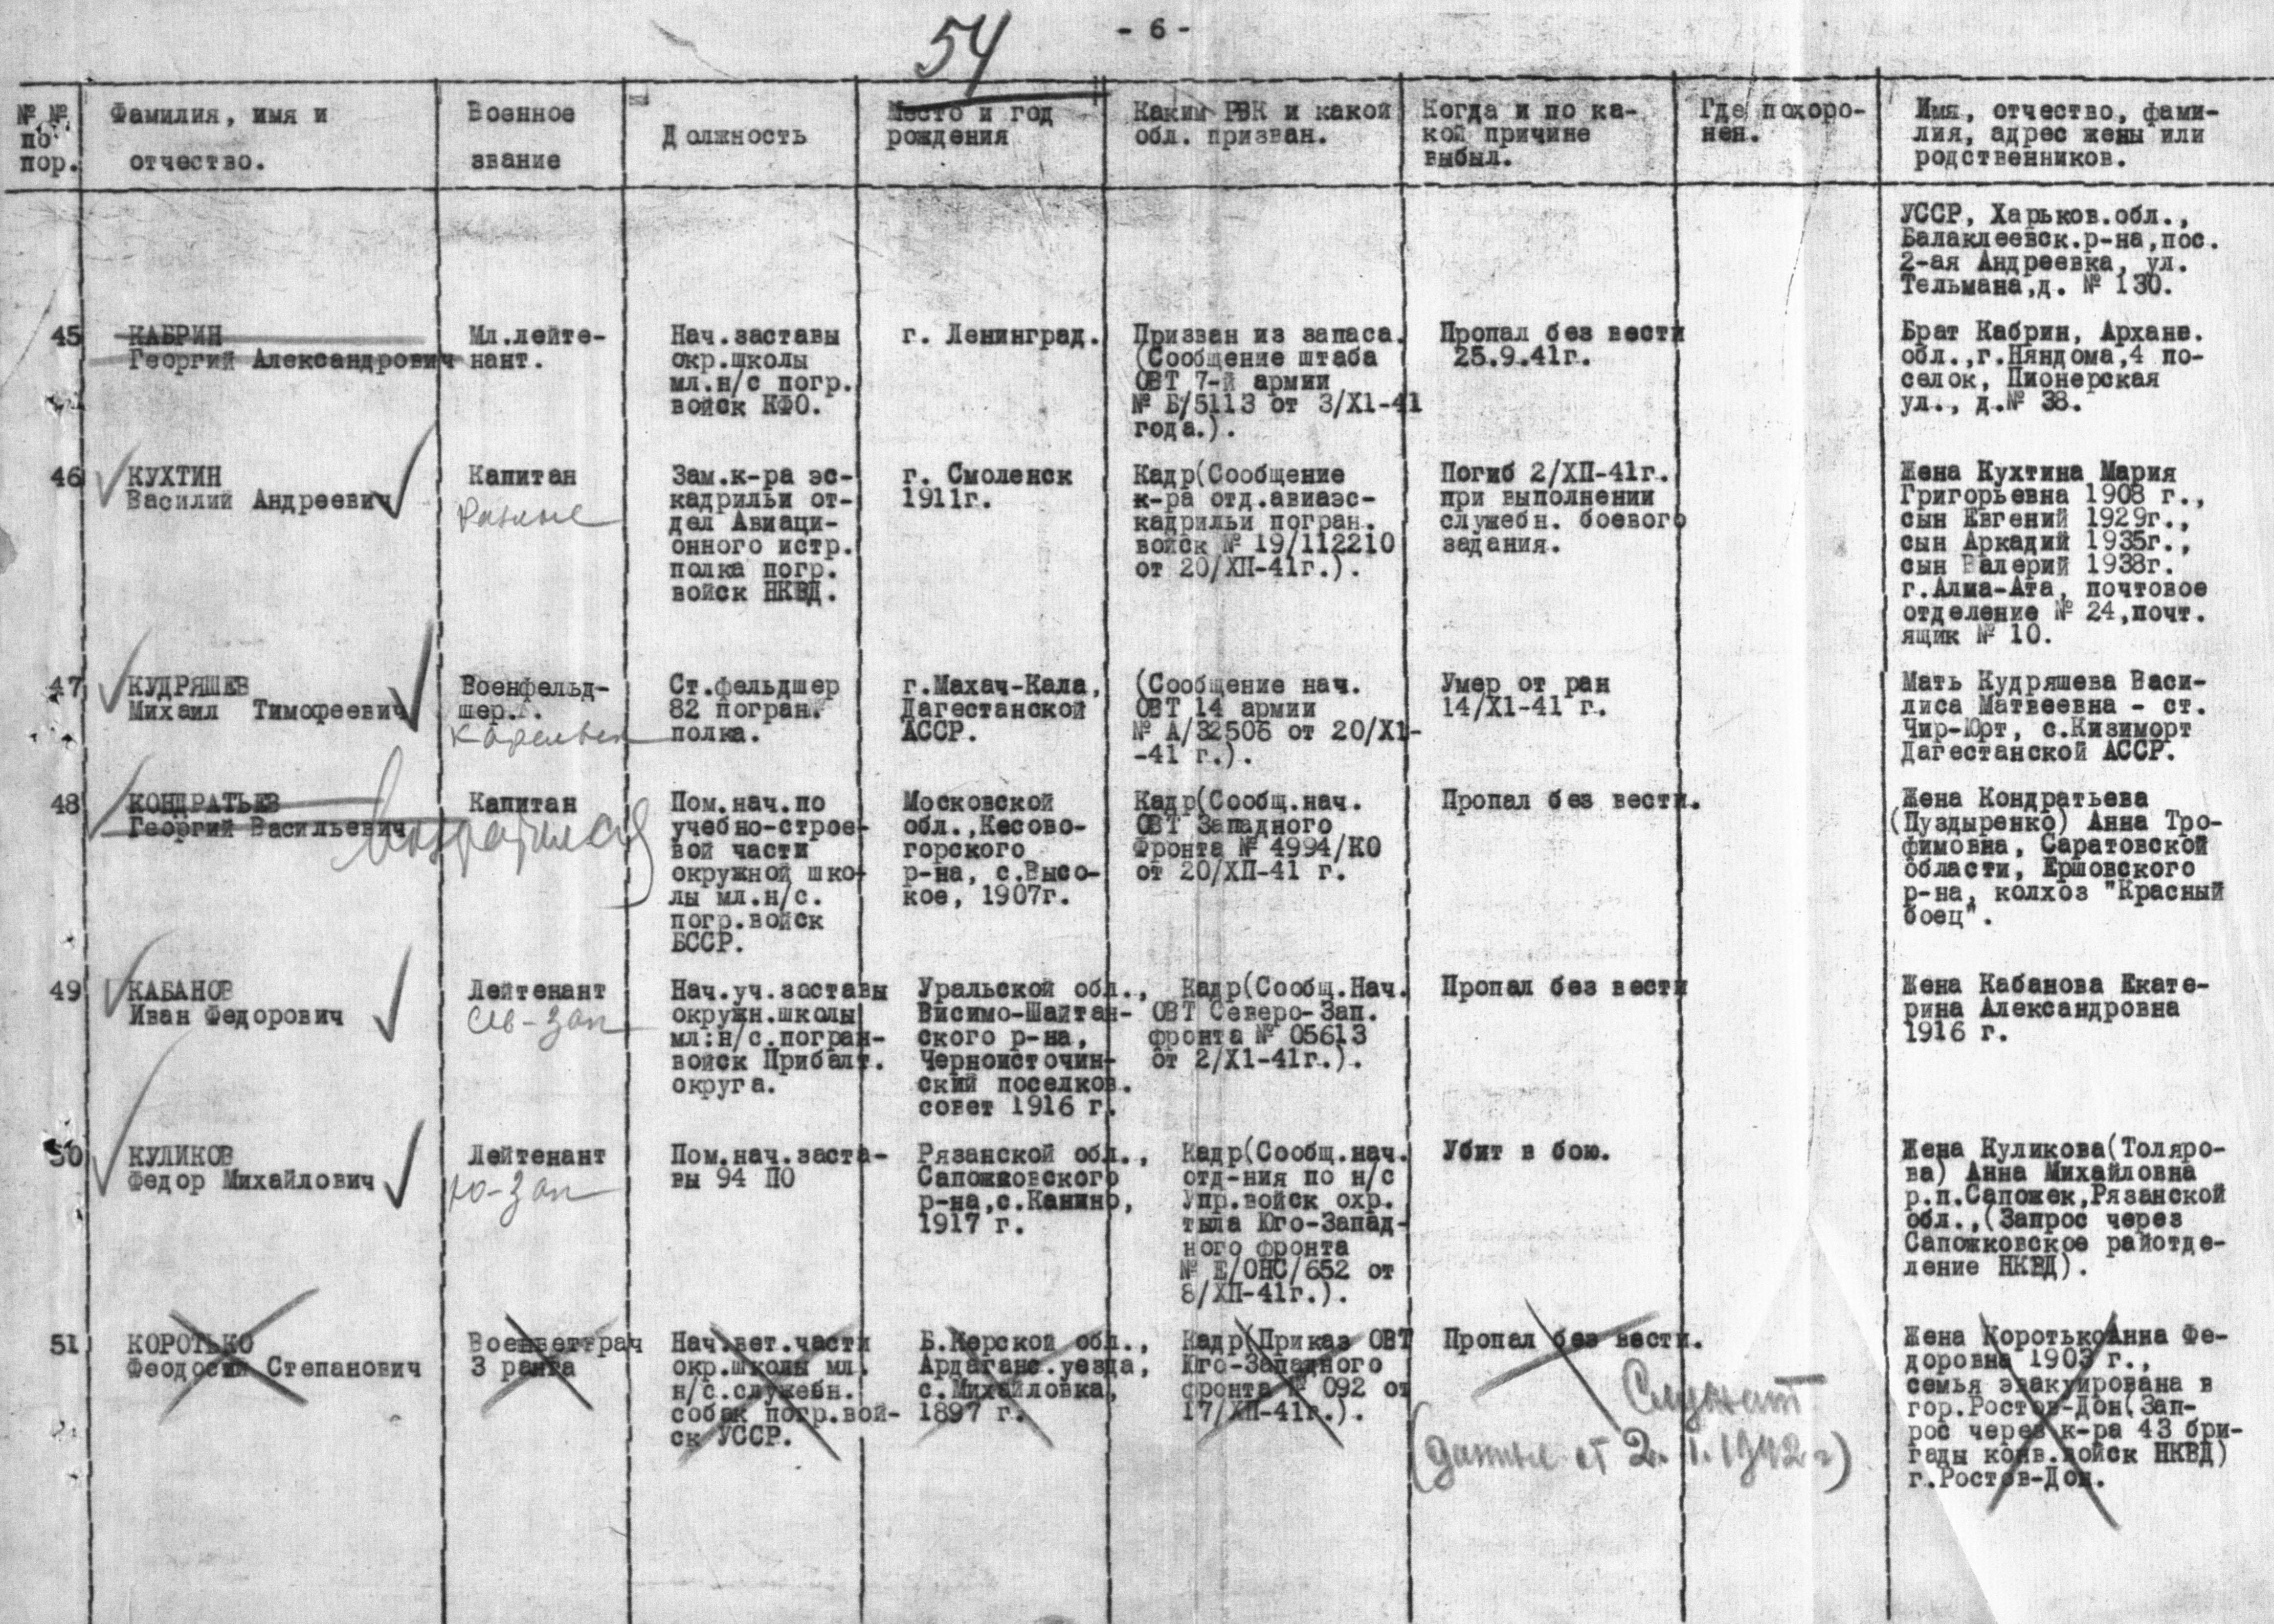 54
- 6 -
№ №
по
пор.
Фамилия, имя и
отчество.
Военное
звание
Должность
Место и год
рождения
Каким РВК и какой
обл. призван.
Когда и по ка-
кой причине
выбыл.
Где похоро-
нен.
Имя, отчество, фами-
лия, адрес жены или
родственников.
УССР, Харьков.обл.,
Балаклеевск.р-на,пос.
2-ая Андреевка, ул.
Тельмана,д. № 130.
45
КАБРИН
Георгий Александрович
Мл.лейте-
нант.
Нач.заставы
окр.школы
мл.н/с погр.
войск КФО.
г. Ленинград.
Призван из запаса.
(Сообщение штаба
ОВТ 7-й армии
№ Б/5113 от 3/Х1-41
года.).
Пропал без вести
25.9.41г.
Брат Кабрин, Арханг.
обл.,г.Няндома,4 по-
селок, Пионерская
ул., д.№ 38.
46
КУХТИН
Василий Андреевич
Капитан
Зам.к-ра эс-
кадрильи от-
дел Авиаци-
онного истр.
полка погр.
войск НКВД.
г. Смоленск
1911г.
Кадр(Сообщение
к-ра отд.авиаэс-
кадрильи погран.
войск № 19/112210
от 20/ХП-41г.).
Погиб 2/ХП-41г.
при выполнении
служебн. боевого
задания.
Жена Кухтина Мария
Григорьевна 1908 г.,
сын Евгений 1929г.,
сын Аркадий 1935г.,
сын Валерий 1938г.
г.Алма-Ата, почтовое
отделение № 24,почт.
ящик № 10.
47
КУДРЯШЕВ
Михаил Тимофеевич
Военфельд-
шер.
Ст.фельдшер
82 погран.
полка.
г.Махач-Кала,
Дагестанской
АССР.
(Сообщение нач.
ОВТ 14 армии
№ А/32506 от 20/Х1-
-41 г.).
Умер от ран
14/Х1-41 г.
Мать Кудряшева Васи-
лиса Матвеевна - ст.
Чир-Юрт, с.Кизиморт
Дагестанской АССР.
48
КОНДРАТЬЕВ
Георгий Васильевич
Капитан
Пом.нач.по
учебно-строе-
вой части
окружной шко-
лы мл.н/с.
погр.войск
БССР.
Московской
обл.,Кесово-
горского
р-на, с.Высо-
кое, 1907г.
Кадр(Сообщ.нач.
ОВТ Западного
Фронта № 4994/КО
от 20/ХП-41 г.
Пропал без вести.
Жена Кондратьева
(Пуздыренко) Анна Тро-
фимовна, Саратовской
области, Ершовского
р-на, колхоз "Красный
боец".
49
КАБАНОВ
Иван Федорович
Лейтенант
Св-зап
Нач.уч.заставы
окружн.школы
мл:н/с.погран-
войск Прибалт.
округа.
Уральской обл.,
Висимо-Шайтан-
ского р-на,
Черноисточин-
ский поселков.
совет 1916 г.
Кадр(Сообщ.Нач.
ОВТ Северо-Зап.
фронта № 05613
от 2/Х1-41г.).
Пропал без вести
Жена Кабанова Екате-
рина Александровна
1916 г.
50
КУЛИКОВ
Федор Михайлович
Лейтенант
Ю-зап
Пом.нач.заста-
вы 94 ПО
Рязанской обл.,
Сапожковского
р-на,с.Канино,
1917 г.
Кадр(Сообщ.нач.
отд-ния по н/с
Упр.войск охр.
тыла Юго-Запад-
ного фронта
№ Е/ОНС/652 от
8/ХП-41г.).
Убит в бою.
Жена Куликова(Толяро-
ва) Анна Михайловна
р.п.Сапожек,Рязанской
обл.,(Запрос через
Сапожковское райотде-
ление НКВД).
51
КОРОТЬКО
Феодосий Степанович
Военветврач
3 ранга
Нач.вет.части
окр.школы мл.
н/с.служебн.
собак погр.вой-
ск УССР.
Б.Керской обл.,
Ардаганс.уезда,
с.Михайловка,
1897 г.
Кадр(Приказ ОВТ
Юго-Западного
фронта № 092 от
17/ХП-41г.).
Пропал без вести.
Служит
(данные от 2.1.1942 г)
Жена КоротькоАнна Фе-
доровна 1903 г.,
семья эвакуирована в
гор.Ростов-Дон(Зап-
рос через к-ра 43 бри-
гады конв.войск НКВД)
г.Ростов-Дон.